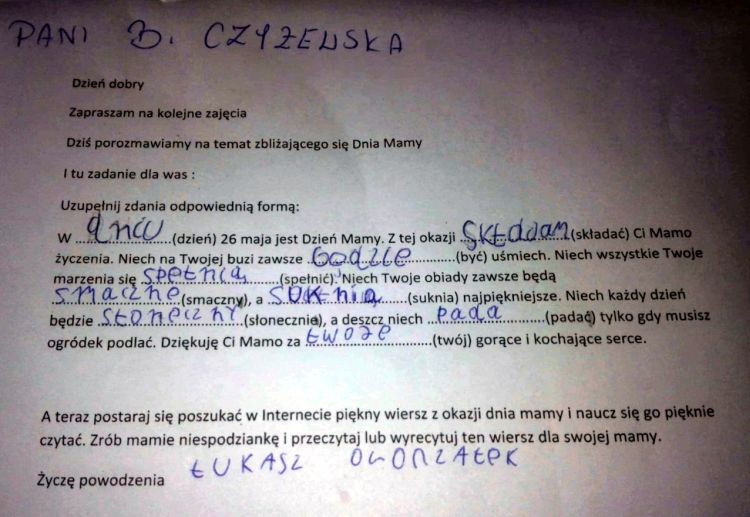 PANI B. CZYŻEWSKA
Dzień dobry
Zapraszam na kolejne zajęcia
Dziś porozmawiamy na temat zbliżającego się Dnia Mamy
I tu zadanie dla was :
Uzupełnij zdania odpowiednią formą:
W ...dniu...(dzień) 26 maja jest Dzień Mamy. Z tej okazji ...składam...(składać) Ci Mamo
życzenia. Niech na Twojej buzi zawsze ...bodzie...(być) uśmiech. Niech wszystkie Twoje
marzenia się spełnią...(spełnić). Niech Twoje obiady zawsze będą
smaczne...(smaczny), a ...suknia...(suknia) najpiękniejsze. Niech każdy dzień
będzie słoneczny...(słecznie), a deszcz niech ...pada...(padać) tylko gdy musisz
ogródek podlać. Dziękuję Ci Mamo za twoje...(twój) gorące i kochające serce.
A teraz postaraj się poszukać w Internecie piękny wiersz z okazji dnia mamy i naucz się go pięknie
czytać. Zrób mamie niespodziankę i przeczytaj lub wyrecytuj ten wiersz dla swojej mamy.
ŁUKASZ
Życzę powodzenia